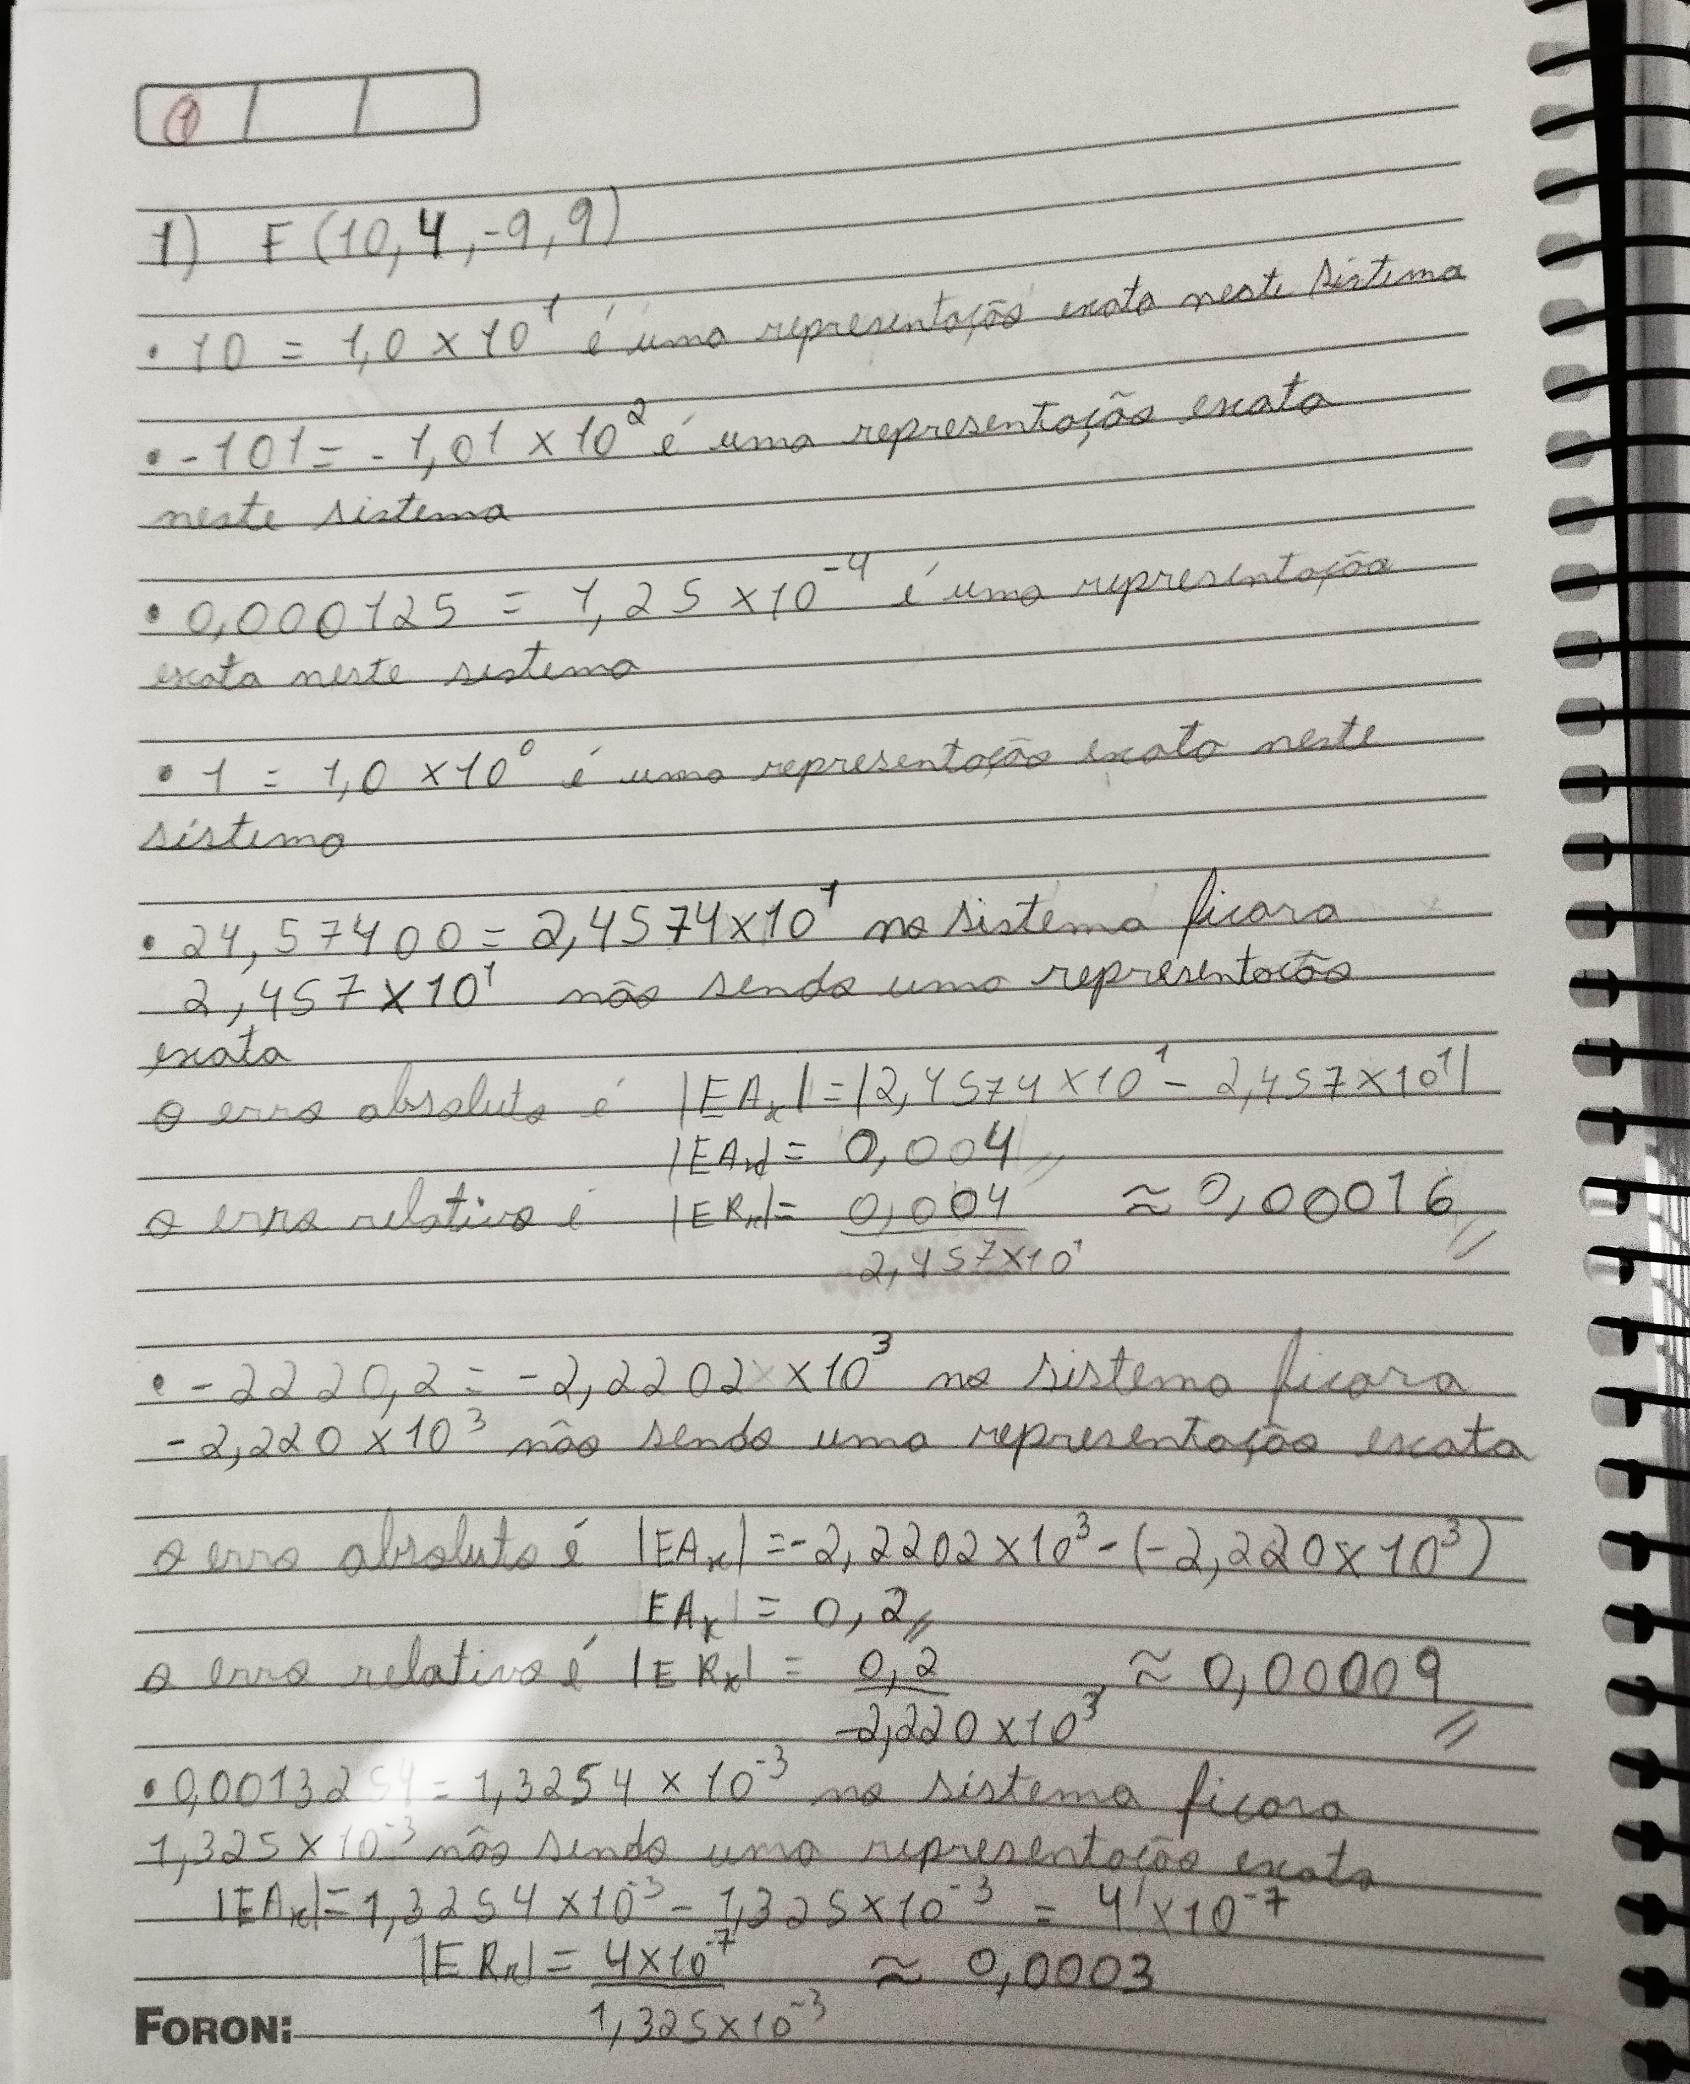 1
1) F(10,4,-9,9)
• 10 = 1,0 x 10¹ é uma representação exata neste sistema
• -101 = -1,01 x 10² é uma representação exata
neste sistema
• 0,000125 = 1,25 x 10⁻⁴ é uma representação
exata neste sistema
• 1 = 1,0 x 10⁰ é uma representação exata neste
sistema
• 24,57400 = 2,4574 x 10¹ no sistema ficara
2,457 x 10¹ não sendo uma representação
exata
o erro absoluto é |EAₓ| = |2,4574 x 10¹ - 2,457 x 10¹|
|EAₓ| = 0,004
o erro relativo é |ERₓ| = 0,004 / 2,457 x 10¹ ≈ 0,00016
• -2220,2 = -2,2202 x 10³ no sistema ficara
-2,220 x 10³ não sendo uma representação exata
o erro absoluto é |EAₓ| = -2,2202 x 10³ - (-2,220 x 10³)
|EAₓ| = 0,2
o erro relativo é |ERₓ| = 0,2 / -2,220 x 10³ ≈ 0,00009
• 0,0013254 = 1,3254 x 10⁻³ no sistema ficara
1,325 x 10⁻³ não sendo uma representação exata
|EAₓ| = 1,3254 x 10⁻³ - 1,325 x 10⁻³ = 4 x 10⁻⁷
|ERₓ| = 4 x 10⁻⁷ / 1,325 x 10⁻³ ≈ 0,0003
FORONI